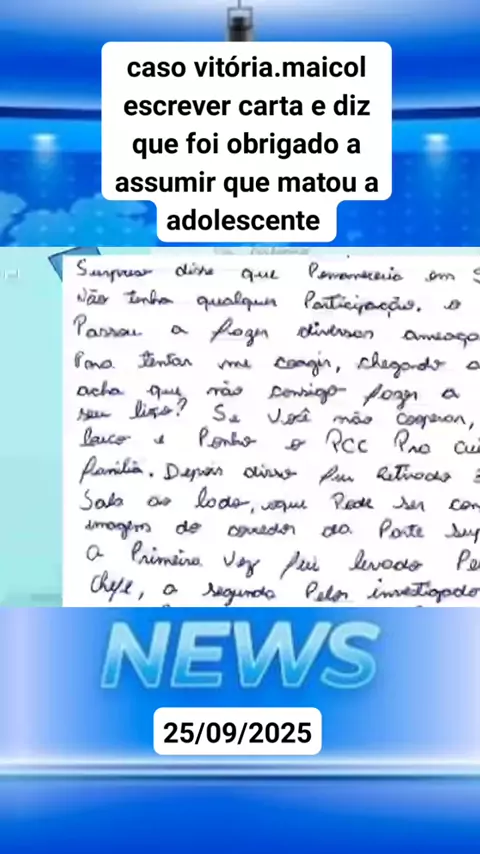 caso vitória.maicol
escrever carta e diz
que foi obrigado a
assumir que matou a
adolescente
Surpreso disse que Permaneceria em S
Não tenho qualquer Participação. e
Passou a fazer diversas ameaça
Para tentar me coagir, chegando a
acha que não consigo fazer a
seu lixo? Se Você não cooperar,
laico e Ponho o PCC Pra cui
família. Depois disso fui retirado
Sala ao lado, que Pode ser con
imagens do corredor da Parte Sup
a Primeira Vez fui levado Pe
Chefe, a segunda Pelos investigado
NEWS
25/09/2025